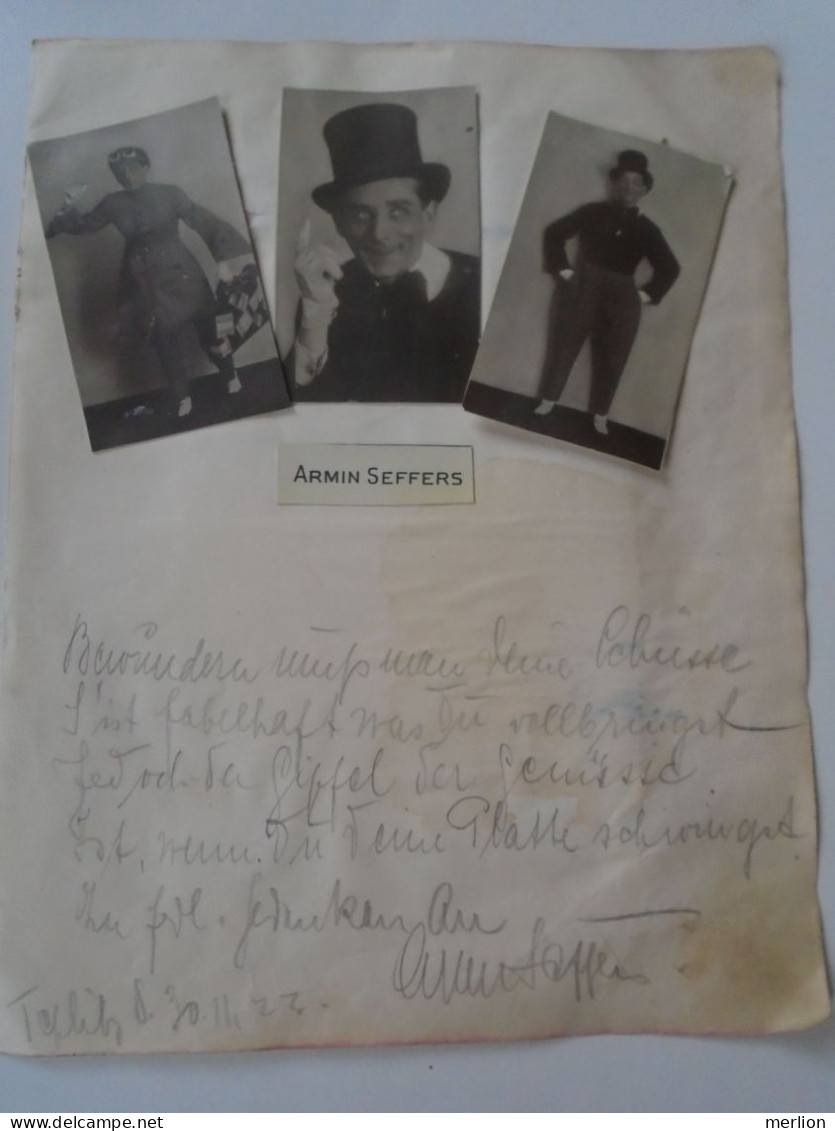 ARMIN SEFFERS
Bewundern muß man deine Schüsse
S'ist fabelhaft was Du vollbringst
Jedoch der Gipfel der Genüsse
Ist, wenn Du deine Platte schwingst.
Zu frdl. Gedenken An
Armin Seffers
Teplitz d. 30.11.22.
delcampe.net
merlion